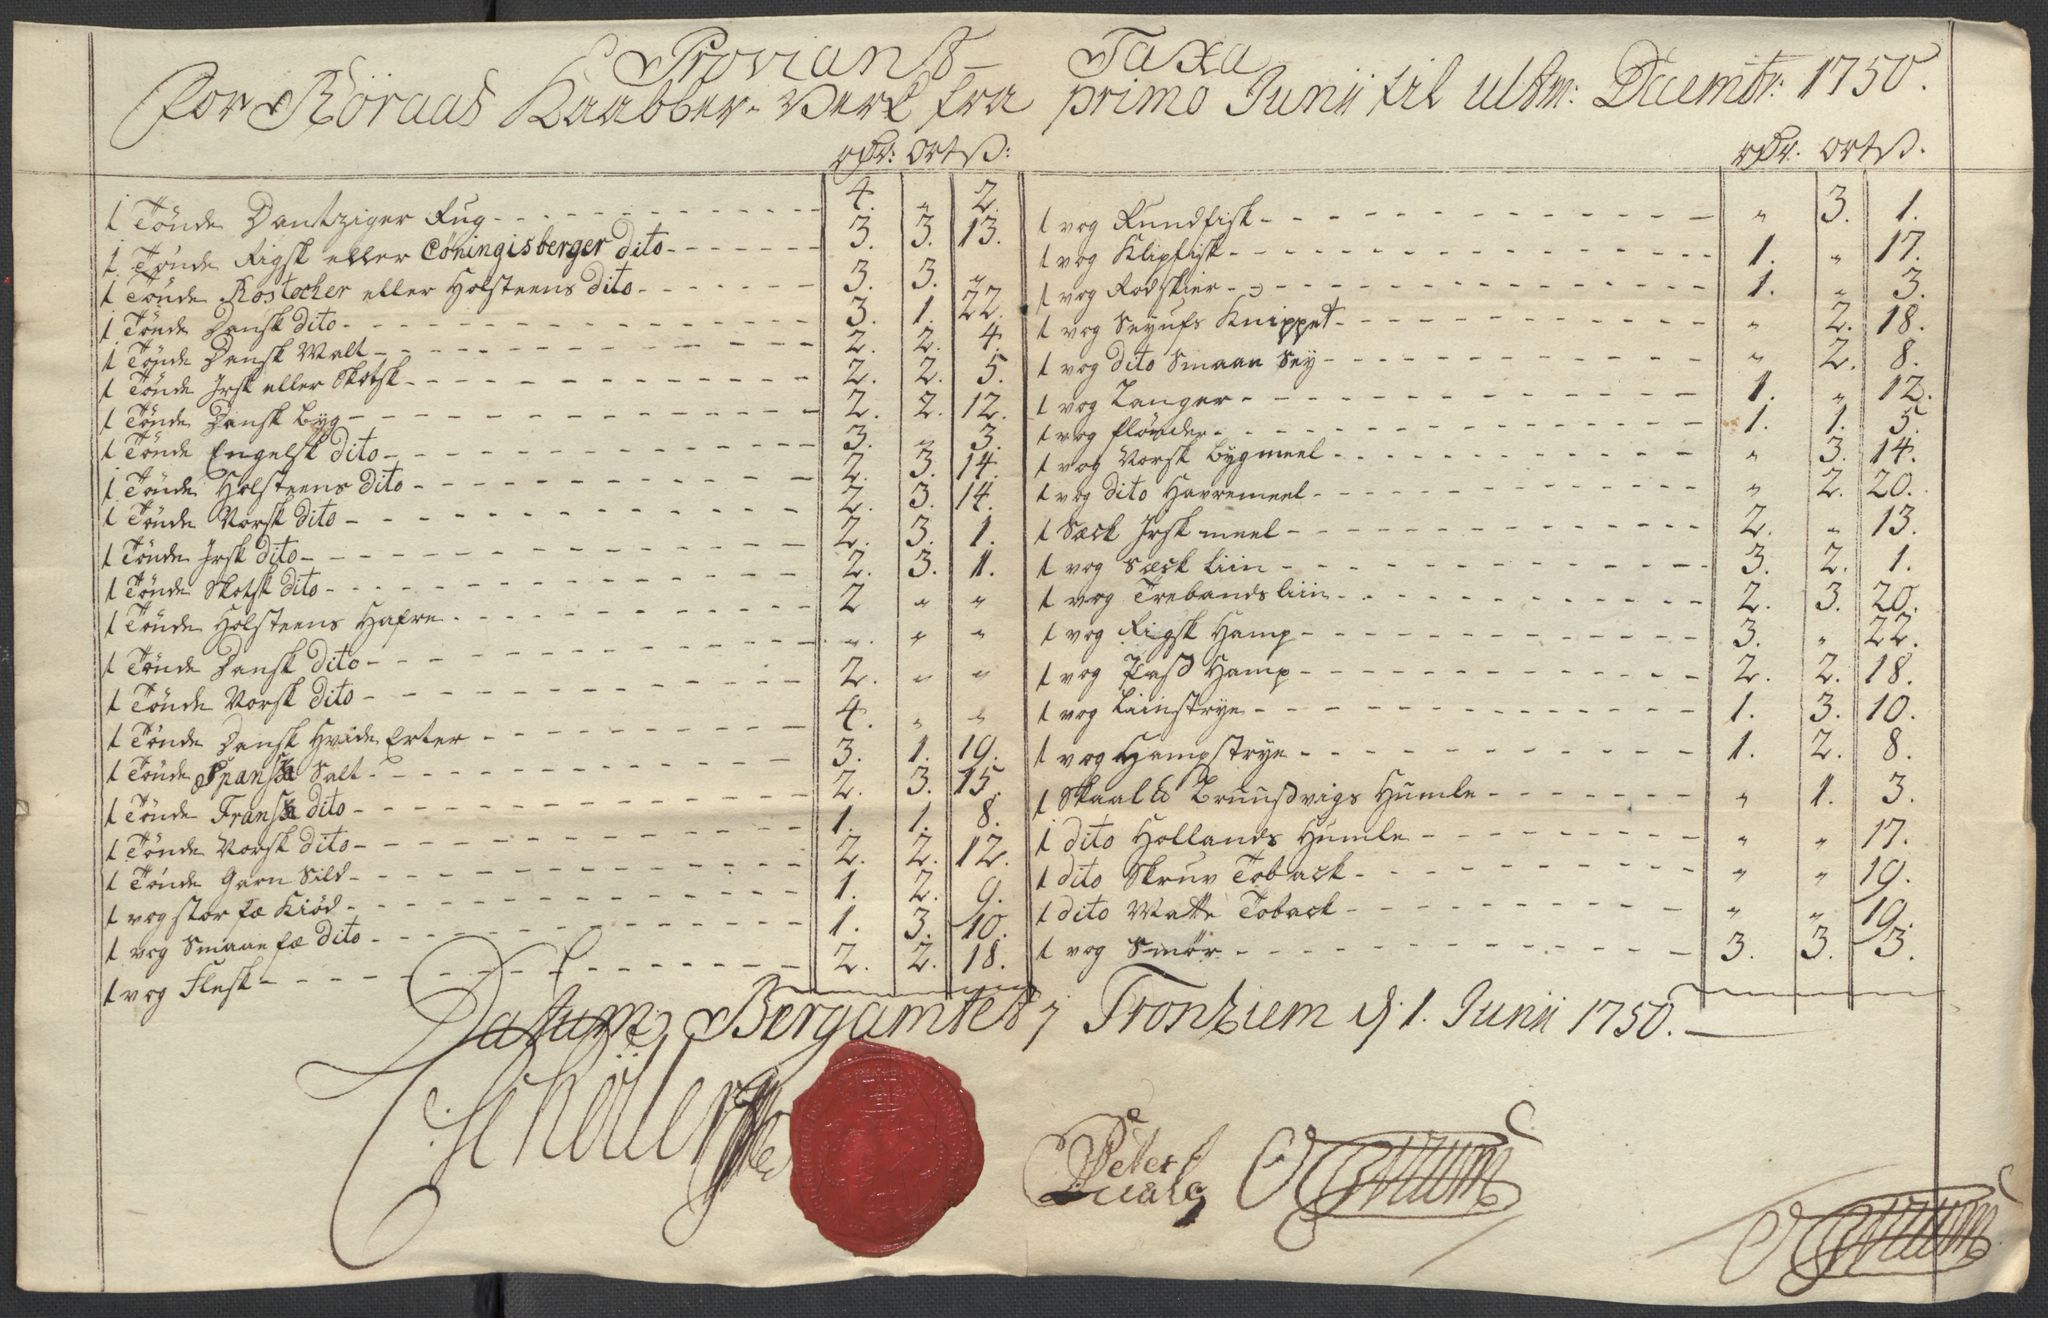 Proviant Taxa
for Röraas Kaabber-Verk fra primo Junii til ultm: Decembr: 1750.
rdr: ort ß:
1 Tønde Dantziger Rug 4. " 2.
1 Tønde Rigsk eller Cöningisberger dito 3. 3. 13.
1 Tønde Rostocker eller Holsteens dito 3. 3. "
1 Tønde Dansk dito 3. 1. 22.
1 Tønde Dansk Malt 2. 2. 4.
1 Tønde Irsk eller Skotsk 2. 2. 5.
1 Tønde Dansk byg 2. 2. 12.
1 Tønde Engelsk dito 3. " 3.
1 Tønde Holsteens dito 2. 3. 14.
1 Tønde Norsk dito 2. 3. 14.
1 Tønde Irsk dito 2. 3. 1.
1 Tønde Skotsk dito 2. 3. 1.
1 Tønde Holsteens Hafre 2 " "
1 Tønde Dansk dito " " "
1 Tønde Norsk dito 2. " "
1 Tønde Dansk Hvide Erter 4. " "
1 Tønde Spansk Salt 3. 1. 19.
1 Tønde Fransk dito 2. 3. 15.
1 Tønde Norsk dito 1. 1. 8.
1 Tønde Garn Sild 2. 2. 12.
1 vog stor fæ Kiød 1. 2. 9.
1 vog Smaae fæ dito 1. 3. 10.
1 vog Flesk 2. 2. 18.
rdr. ort ß.
1 vog Rundfisk " 3. 1.
1 vog Klipfisk 1. " 17.
1 vog Rodskier 1. " 3.
1 vog Seyufs Knippet " 2. 18.
1 vog dito Smaae Sey " 2. 8.
1 vog Langer 1. " 12.
1 vog flønder 1. 1. 5.
1 vog Norsk bygmeel " 3. 14.
1 vog dito Havremeel " 2. 20.
1 Sæck Irsk meel 2. " 13.
1 vog Sæck Liin 3. 2. 1.
1 vog Trebands liin 2. 3. 20.
1 vog Rigsk Hamp 3. " 22.
1 vog Pasß Hamp 2. 2. 18.
1 vog Liinstrye 1. 3. 10.
1 vog Hampstrye 1. 2. 8.
1 Skaal℔ Brunsßvigs Humle " 1. 3.
1 dito Hollands Humle " " 17.
1 dito Skruv Toback " " 19.
1 dito Matte Toback " " 19.
1 vog Smör 3. 3. 3.
Datum Bergamtet j Tronhiem d. 1. Junii 1750.
Schøller
Peter